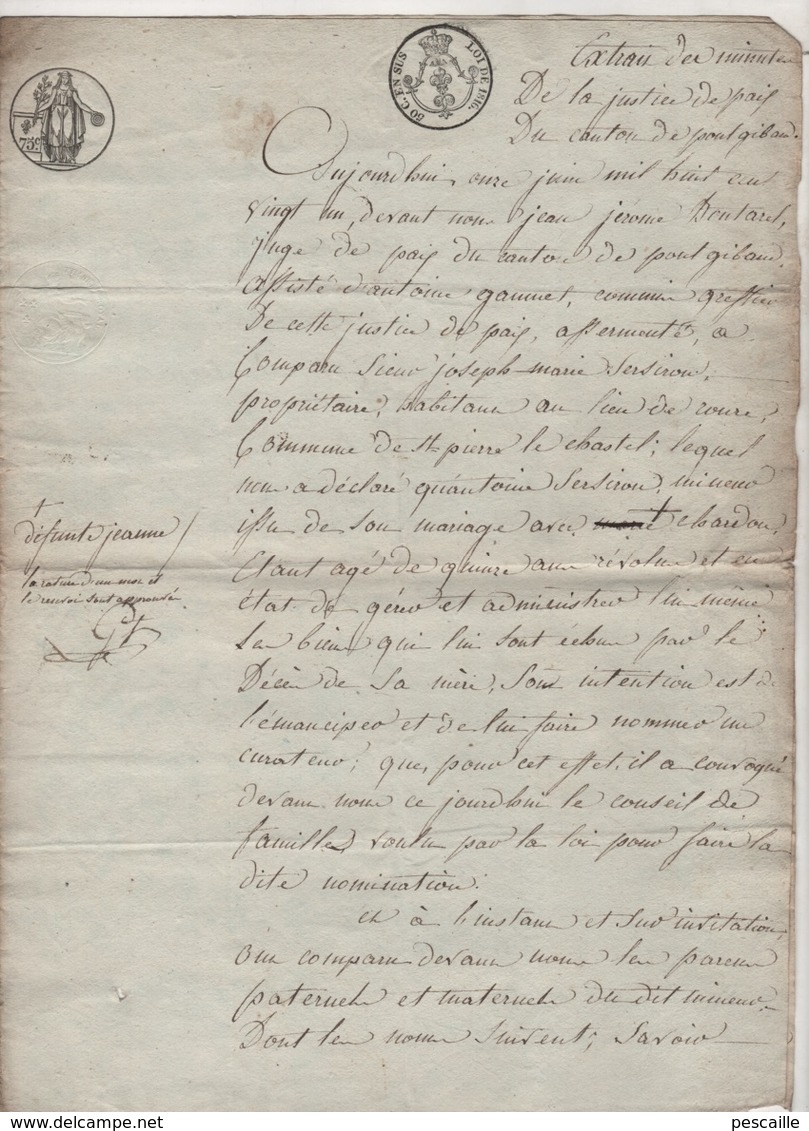 Extrait des minutes
De la justice de paix
Du canton de pontgibaud.
50 C. EN SUS
LOI DE 1816.
75c
Aujourdhui onze juin mil huit cent
vingt un, devant nous jean jérome Boutarel,
juge de paix du canton de pontgibaud,
assisté d'antoine gannet, commis greffier
De cette justice de paix, assermenté, a
Comparu Sieur joseph-marie Sersiron,
propriétaire, habitant au lieu de roure,
Commune de St pierre le chastel; lequel
nous a déclaré qu'antoine Sersiron, mineur
issu de son mariage avec + chardon,
Etant agé de quinze ans révolus et en
état de gérer et administrer lui meme
Les biens qui lui sont échus par le
Décès de sa mère, Son intention est de
l'émanciper et de lui faire nommer un
curateur; que, pour cet effet, il a convoqué
devant nous ce jourdhui le conseil de
famille voulu par la loi pour faire la
dite nomination.
et à l'instant et sur invitation,
ont comparu devant nous les parens
paternels et maternels du dit mineur,
Dont les noms suivent; Savoir
+
défunte jeanne /
la rature d'un mot et
le renvoi sont approuvés
pescaille